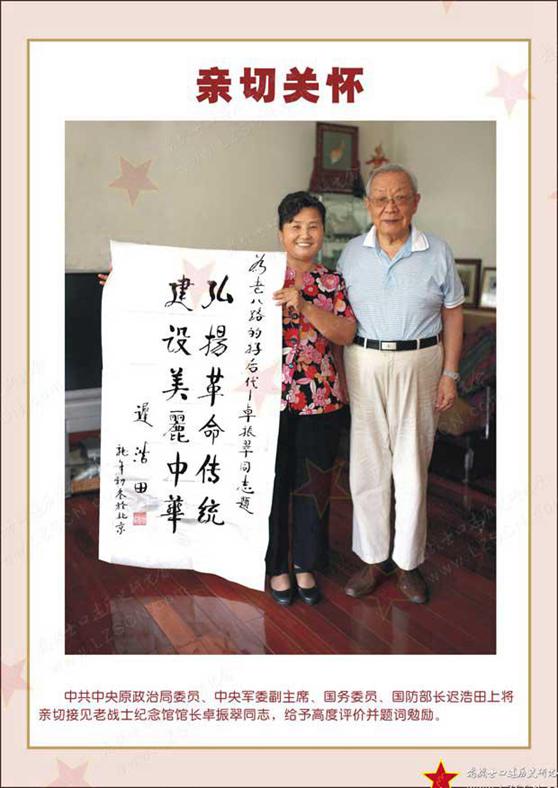 亲切关怀
为老八路的好后代—卓振翠同志题
弘揚革命传统
建设美麗中華
遲浩田
年初於北京
中共中央原政治局委员、中央军委副主席、国务委员、国防部长迟浩田上将
亲切接见老战士纪念馆馆长卓振翠同志，给予高度评价并题词勉励。
老战士口述历史研究